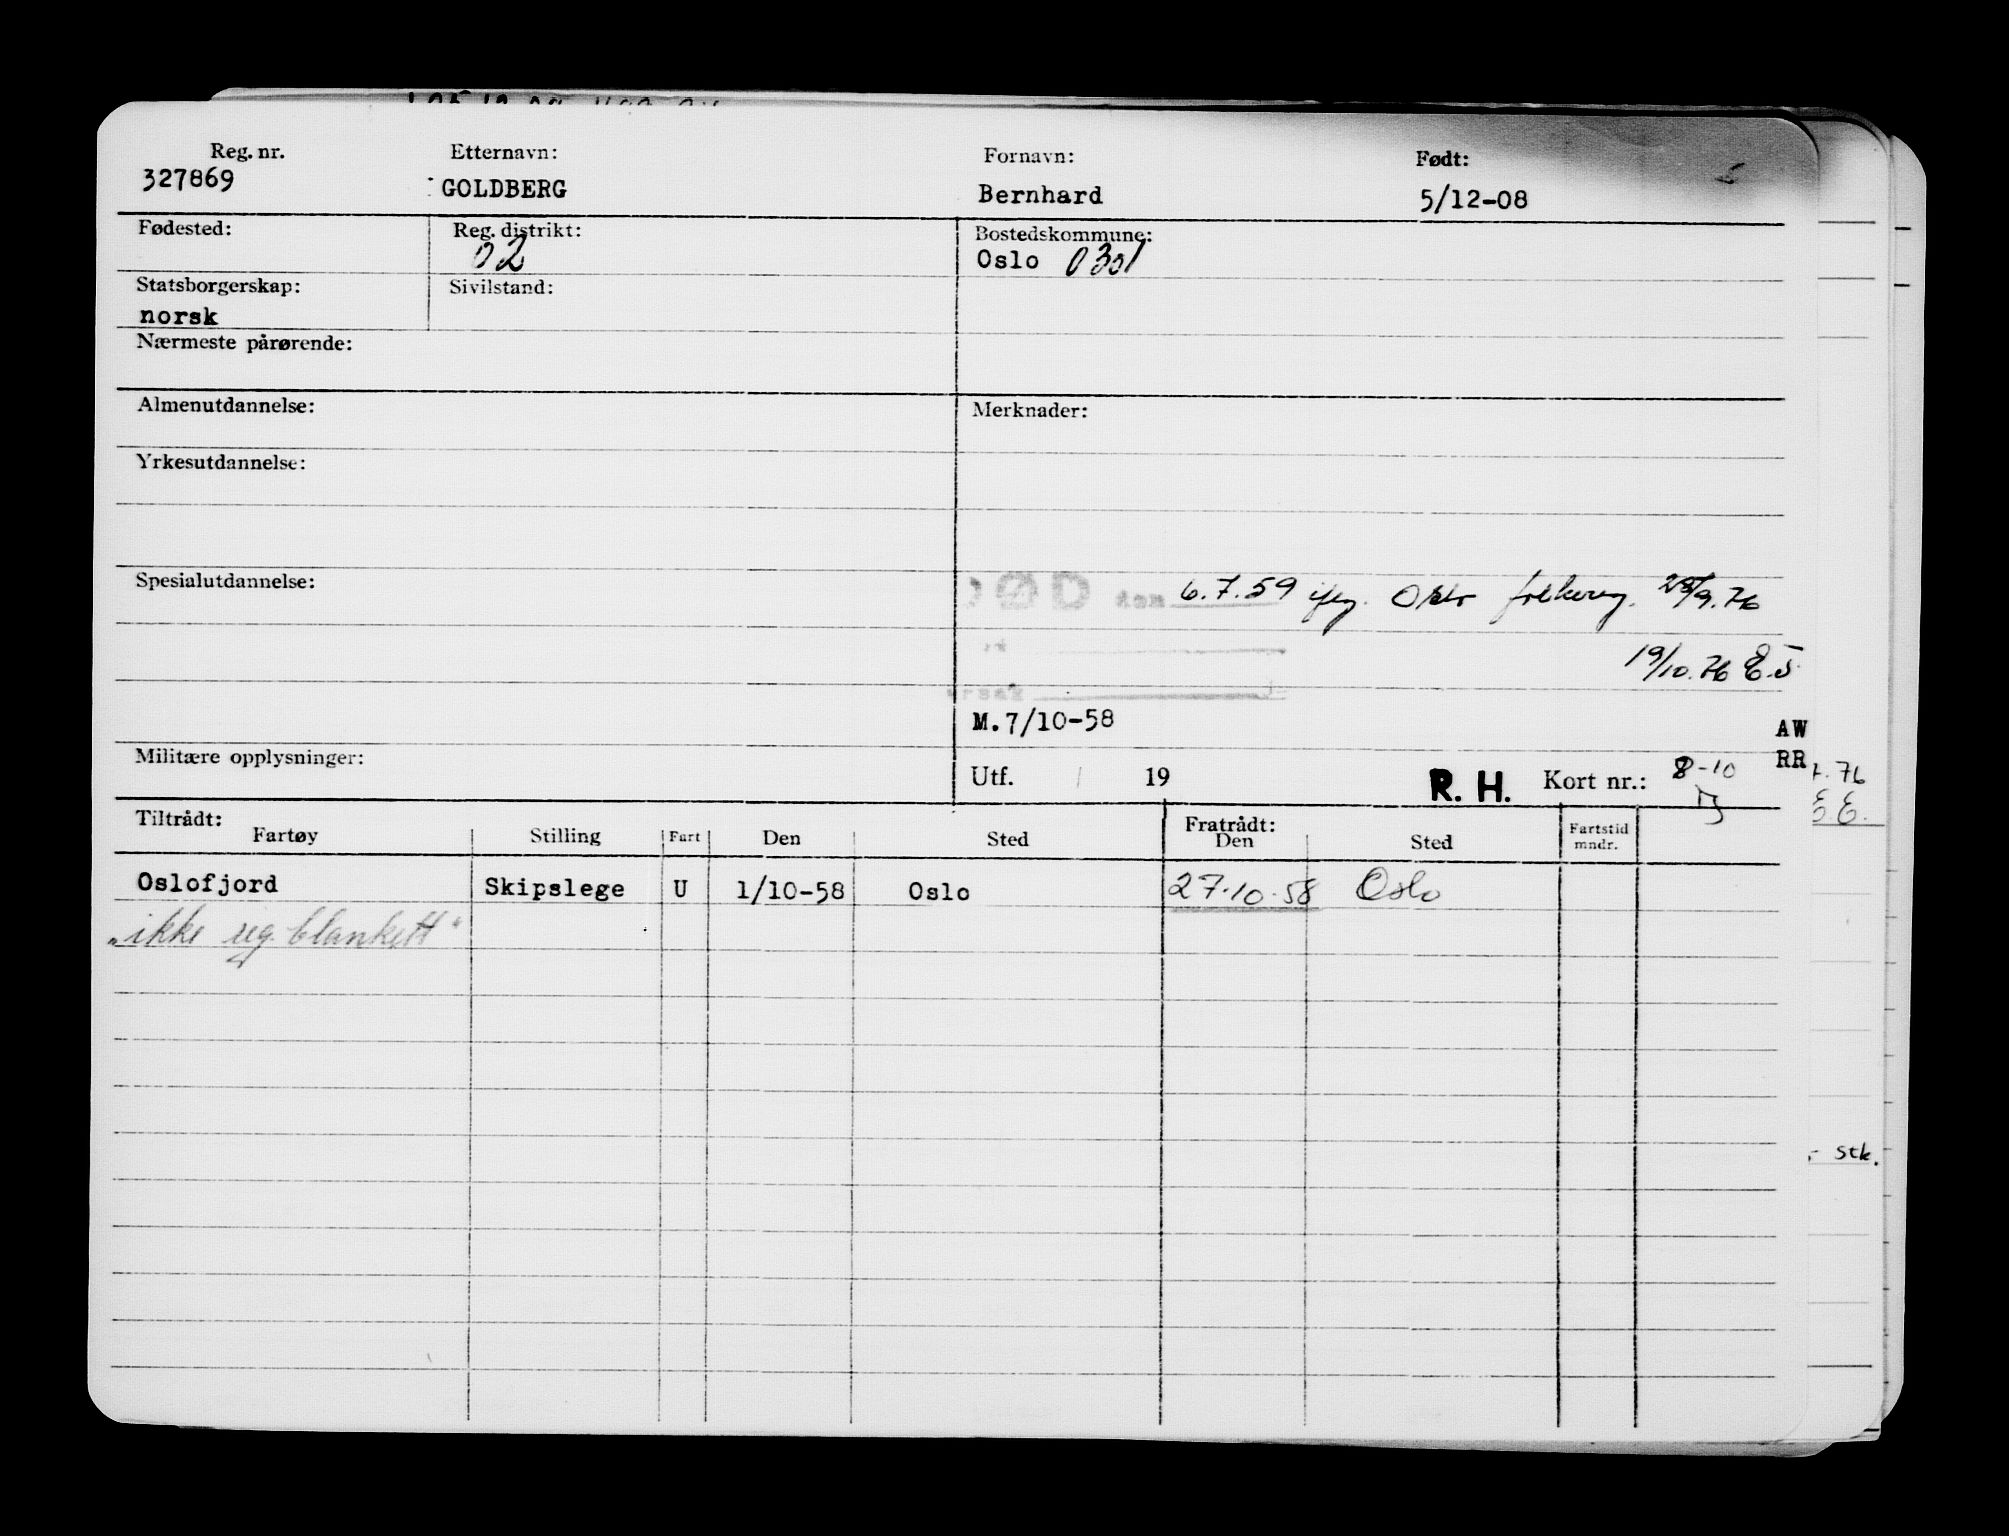 Reg. nr. Etternavn: Fornavn: Født:
327869 GOLDBERG Bernhard 5/12-08
Fødested: Reg. distrikt: Bostedskommune:
02 Oslo 0301
Statsborgerskap: Sivilstand:
norsk
Nærmeste pårørende:
Almenutdannelse: Merknader:
Yrkesutdannelse:
Spesialutdannelse: DØD den 6.7.59 ifg. Oslo folkereg. 28/9.76
19/10.76
M.7/10-58 AW
Militære opplysninger: Utf. / 19 R. H. Kort nr.: 8-10 RR
Tiltrådt: Fratrådt:
Fartøy Stilling Fart Den Sted Den Sted Fartstid mndr.
Oslofjord Skipslege U 1/10-58 Oslo 27.10.58 Oslo
"ikke reg. blankett"
76
E.E.
stk.